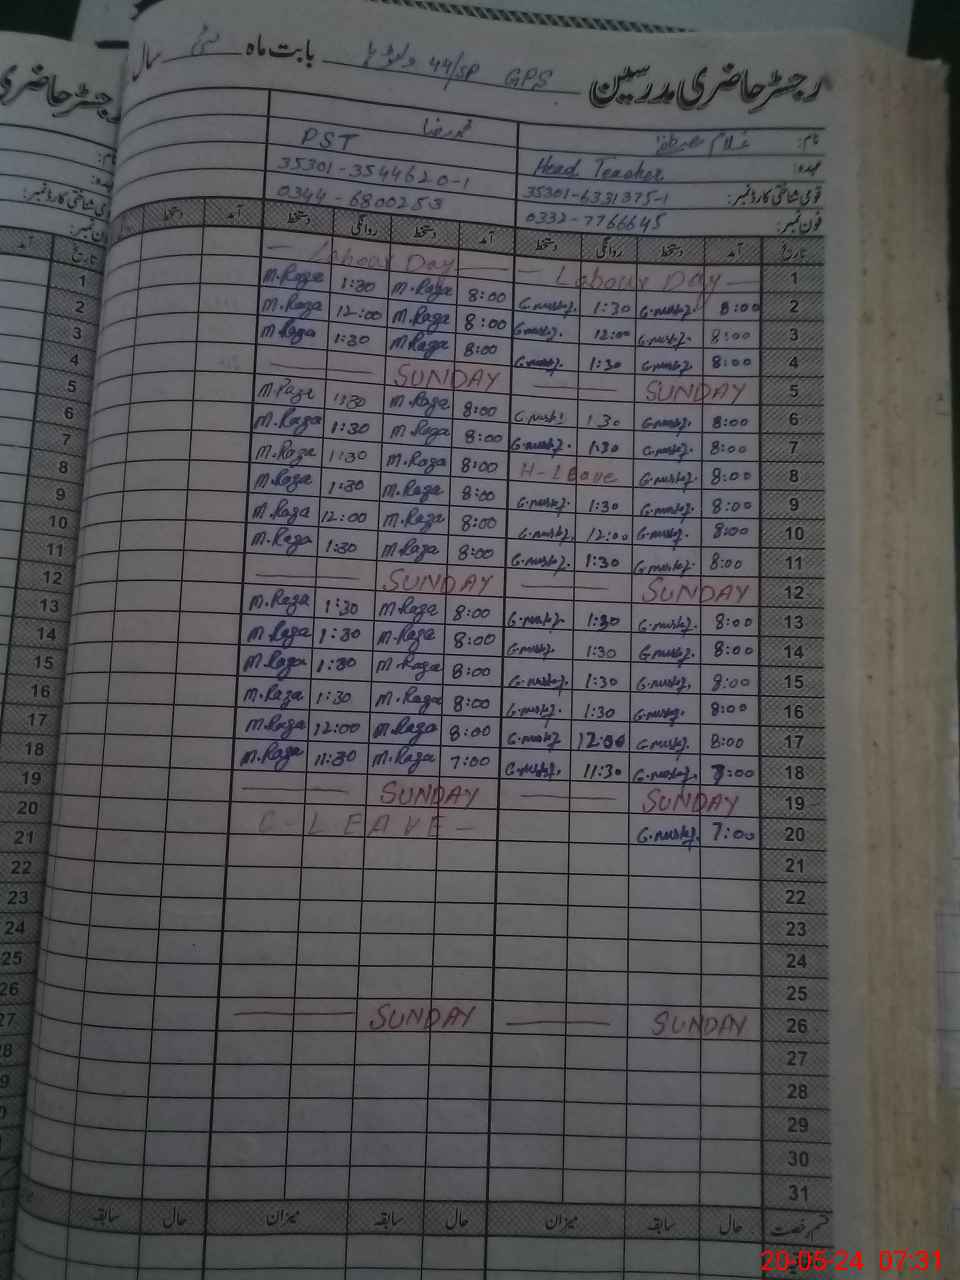 رجسٹر حاضری مدرسین GPS 44/SP بابت ماہ مئی سال
نام: غلام مصطفیٰ محمد رضا
عہدہ: Head Teacher PST
قومی شناختی کارڈ نمبر: 35301-6331375-1 35301-3544620-1
فون نمبر: 0332-7766645 0344-6800253
تاریخ آمد دستخط روانگی دستخط آمد دستخط روانگی دستخط آمد دستخط
1 Labour Day Labour Day
2 8:00 G.mustf. 1:30 G.mustf. 8:00 M.Raza 1:30 M.Raza
3 8:00 G.mustf. 12:00 G.mustf. 8:00 M.Raza 12:00 M.Raza
4 8:00 G.mustf. 1:30 G.mustf. 8:00 M.Raza 1:30 M.Raza
5 SUNDAY SUNDAY
6 8:00 G.mustf. 1:30 G.mustf. 8:00 M.Raza 1:30 M.Raza
7 8:00 G.mustf. 1:30 G.mustf. 8:00 M.Raza 1:30 M.Raza
8 8:00 G.mustf. H-Leave 8:00 M.Raza 1:30 M.Raza
9 8:00 G.mustf. 1:30 G.mustf. 8:00 M.Raza 1:30 M.Raza
10 8:00 G.mustf. 12:00 G.mustf. 8:00 M.Raza 12:00 M.Raza
11 8:00 G.mustf. 1:30 G.mustf. 8:00 M.Raza 1:30 M.Raza
12 SUNDAY SUNDAY
13 8:00 G.mustf. 1:30 G.mustf. 8:00 M.Raza 1:30 M.Raza
14 8:00 G.mustf. 1:30 G.mustf. 8:00 M.Raza 1:30 M.Raza
15 8:00 G.mustf. 1:30 G.mustf. 8:00 M.Raza 1:30 M.Raza
16 8:00 G.mustf. 1:30 G.mustf. 8:00 M.Raza 1:30 M.Raza
17 8:00 G.mustf. 12:00 G.mustf. 8:00 M.Raza 12:00 M.Raza
18 7:00 G.mustf. 11:30 G.mustf. 7:00 M.Raza 11:30 M.Raza
19 SUNDAY SUNDAY
20 7:00 G.mustf. C-LEAVE
21
22
23
24
25
26 SUNDAY SUNDAY
27
28
29
30
31
قسم رخصت حال سابقہ میزان حال سابقہ میزان حال سابقہ
رجسٹر حاضری
نام:
عہدہ:
فون نمبر:
تاریخ آمد
1
2
3
4
5
6
7
8
9
10
11
12
13
14
15
16
17
18
19
20
21
22
23
24
25
26
27
20-05-24 07:31